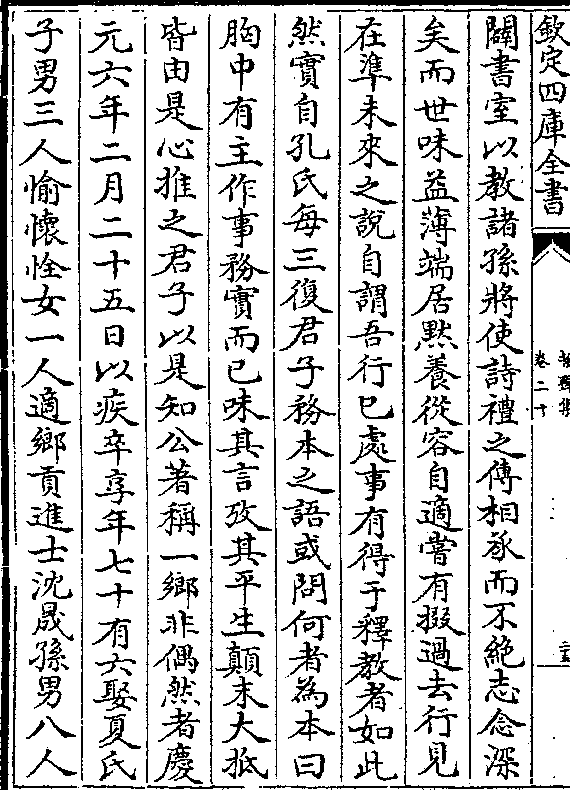 欽定四庫全書
卷二十
闢書室以教諸孫將使詩禮之傳相承而不絶志念深
矣而世味益薄端居黙養從容自適嘗有掇過去行見
在準未來之說自謂吾行已處事有得于釋教者如此
然實自孔氏每三復君子務本之語或問何者為本曰
胸中有主作事務實而已味其言攷其平生顛末大抵
皆由是心推之君子以是知公著稱一鄉非偶然者慶
元六年二月二十五日以疾卒享年七十有六娶夏氏
子男三人愉懷恮女一人適鄉貢進士沈晟孫男八人